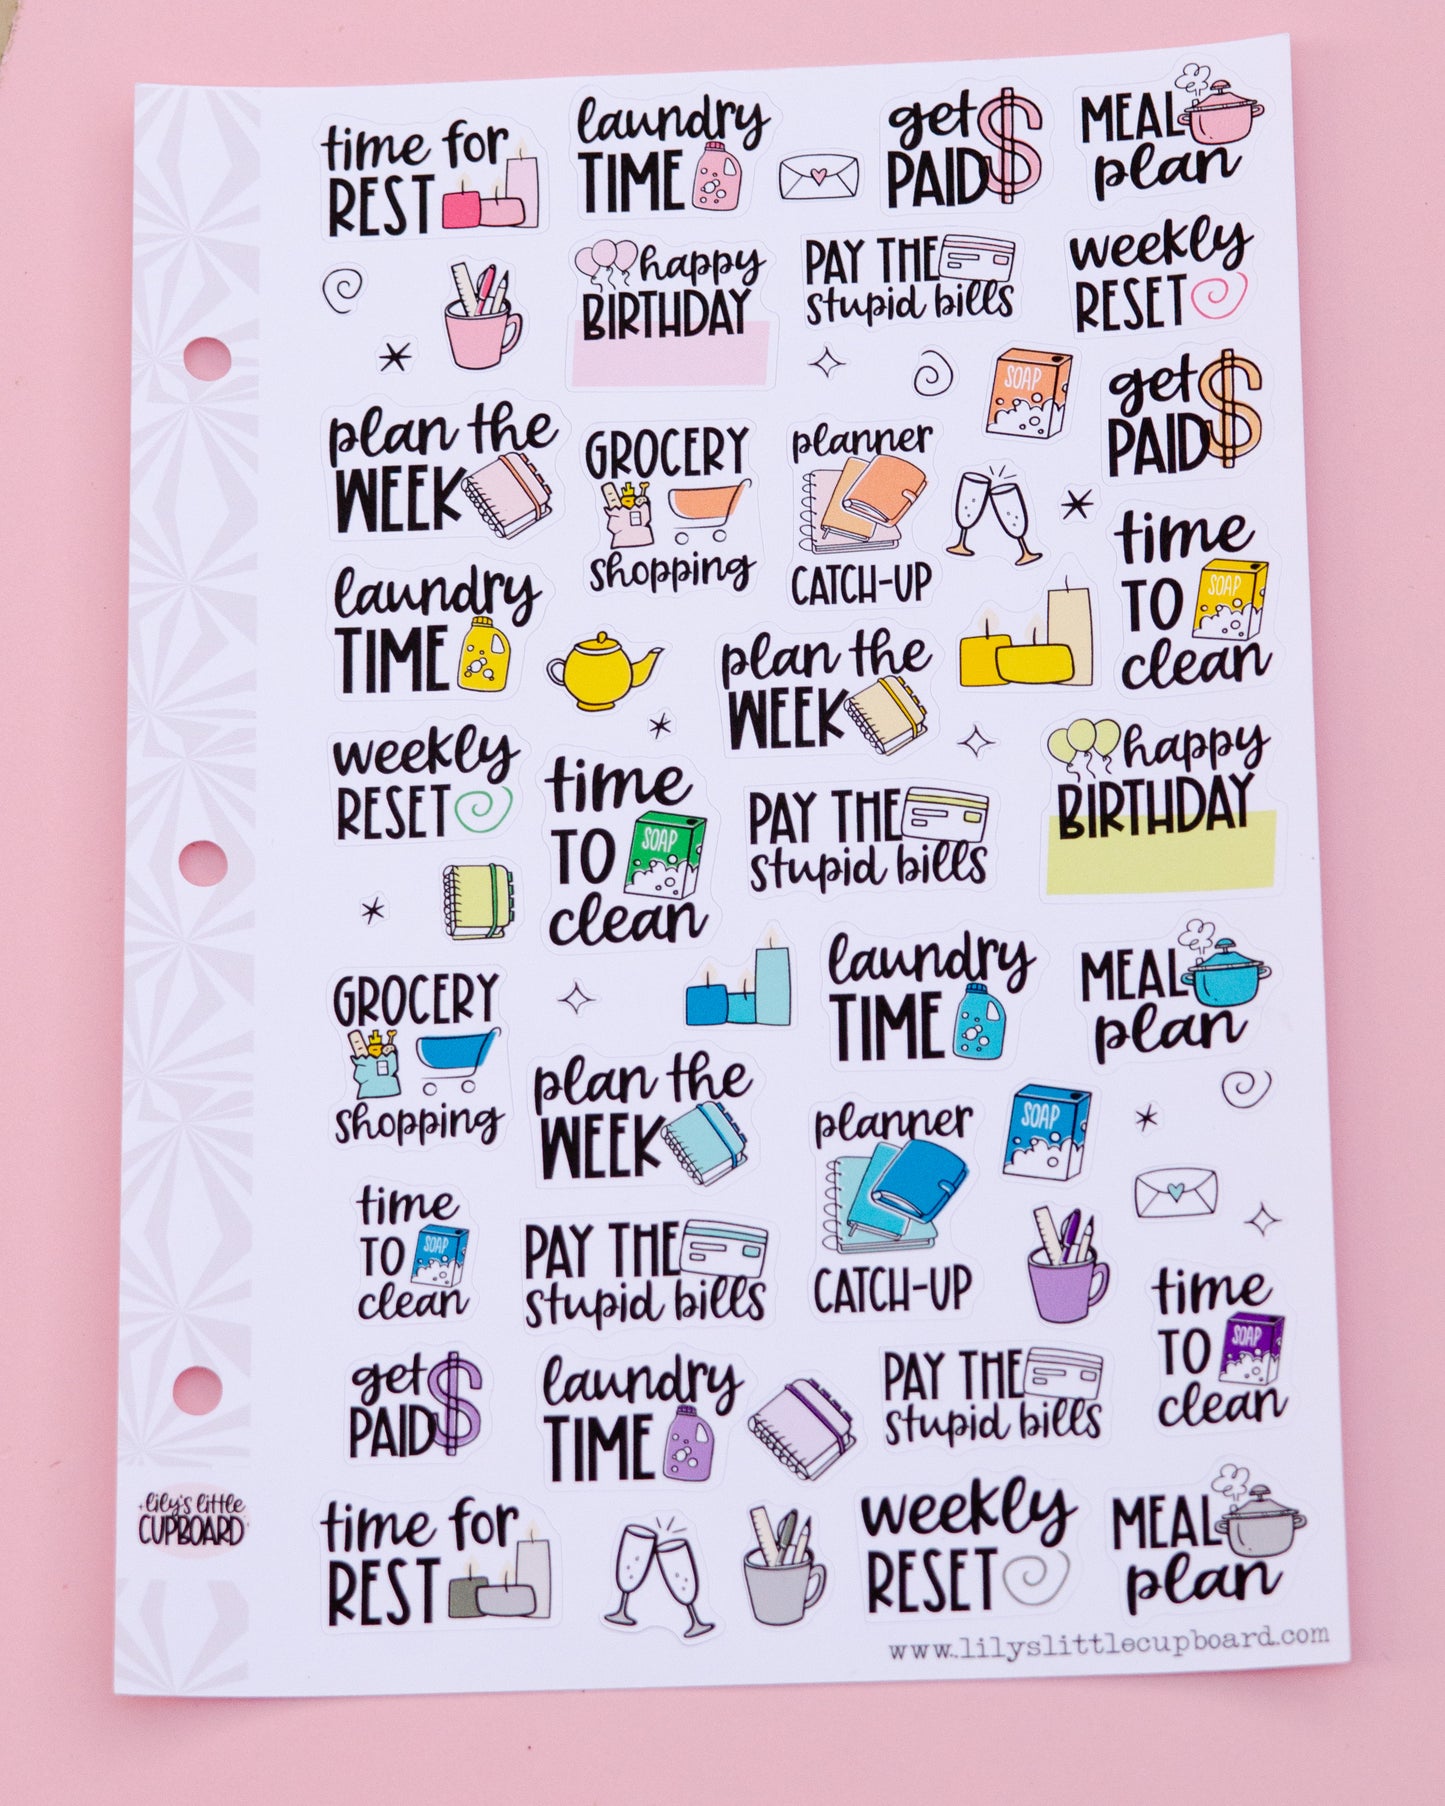 time for
REST
laundry
TIME
get
PAID
MEAL
plan
happy
BIRTHDAY
PAY THE
stupid bills
weekly
RESET
SOAP
get
PAID
plan the
WEEK
GROCERY
shopping
planner
CATCH-UP
time
TO
SOAP
clean
laundry
TIME
plan the
WEEK
weekly
RESET
time
TO
SOAP
clean
PAY THE
stupid bills
happy
BIRTHDAY
GROCERY
shopping
laundry
TIME
MEAL
plan
plan the
WEEK
planner
CATCH-UP
SOAP
time
TO
SOAP
clean
PAY THE
stupid bills
time
TO
SOAP
clean
get
PAID
laundry
TIME
PAY THE
stupid bills
lily's little
CUPBOARD
time for
REST
weekly
RESET
MEAL
plan
www.lilyslittlecupboard.com